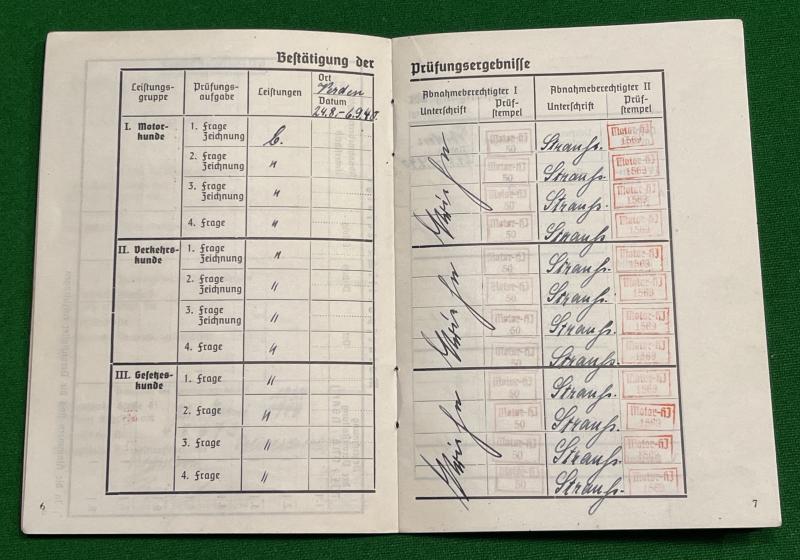 Bestätigung der
Leistungs-
gruppe
Prüfungs-
aufgabe
Leistungen
Ort
Verden
Datum
24.8.-6.9.40.
I. Motor-
kunde
1. Frage
Zeichnung
2. Frage
Zeichnung
"
3. Frage
Zeichnung
"
4. Frage
"
II. Verkehrs-
kunde
1. Frage
Zeichnung
"
2. Frage
Zeichnung
"
3. Frage
Zeichnung
"
4. Frage
"
III. Gesetzes-
kunde
1. Frage
"
2. Frage
"
3. Frage
"
4. Frage
"
6
Prüfungsergebnisse
Abnahmeberechtigter I
Unterschrift
Prüf-
stempel
Abnahmeberechtigter II
Unterschrift
Prüf-
stempel
Motor-HJ
50
Strauß.
Motor-HJ
1569
Motor-HJ
50
Strauß.
Motor-HJ
1569
Motor-HJ
50
Strauß.
Motor-HJ
1569
Motor-HJ
50
Strauß.
Motor-HJ
1569
Motor-HJ
50
Strauß.
Motor-HJ
1569
Motor-HJ
50
Strauß.
Motor-HJ
1569
Motor-HJ
50
Strauß.
Motor-HJ
1569
Motor-HJ
50
Strauß.
Motor-HJ
1569
Motor-HJ
50
Strauß.
Motor-HJ
1569
Motor-HJ
50
Strauß.
Motor-HJ
1569
Motor-HJ
50
Strauß.
Motor-HJ
1569
Motor-HJ
50
Strauß.
Motor-HJ
1569
7